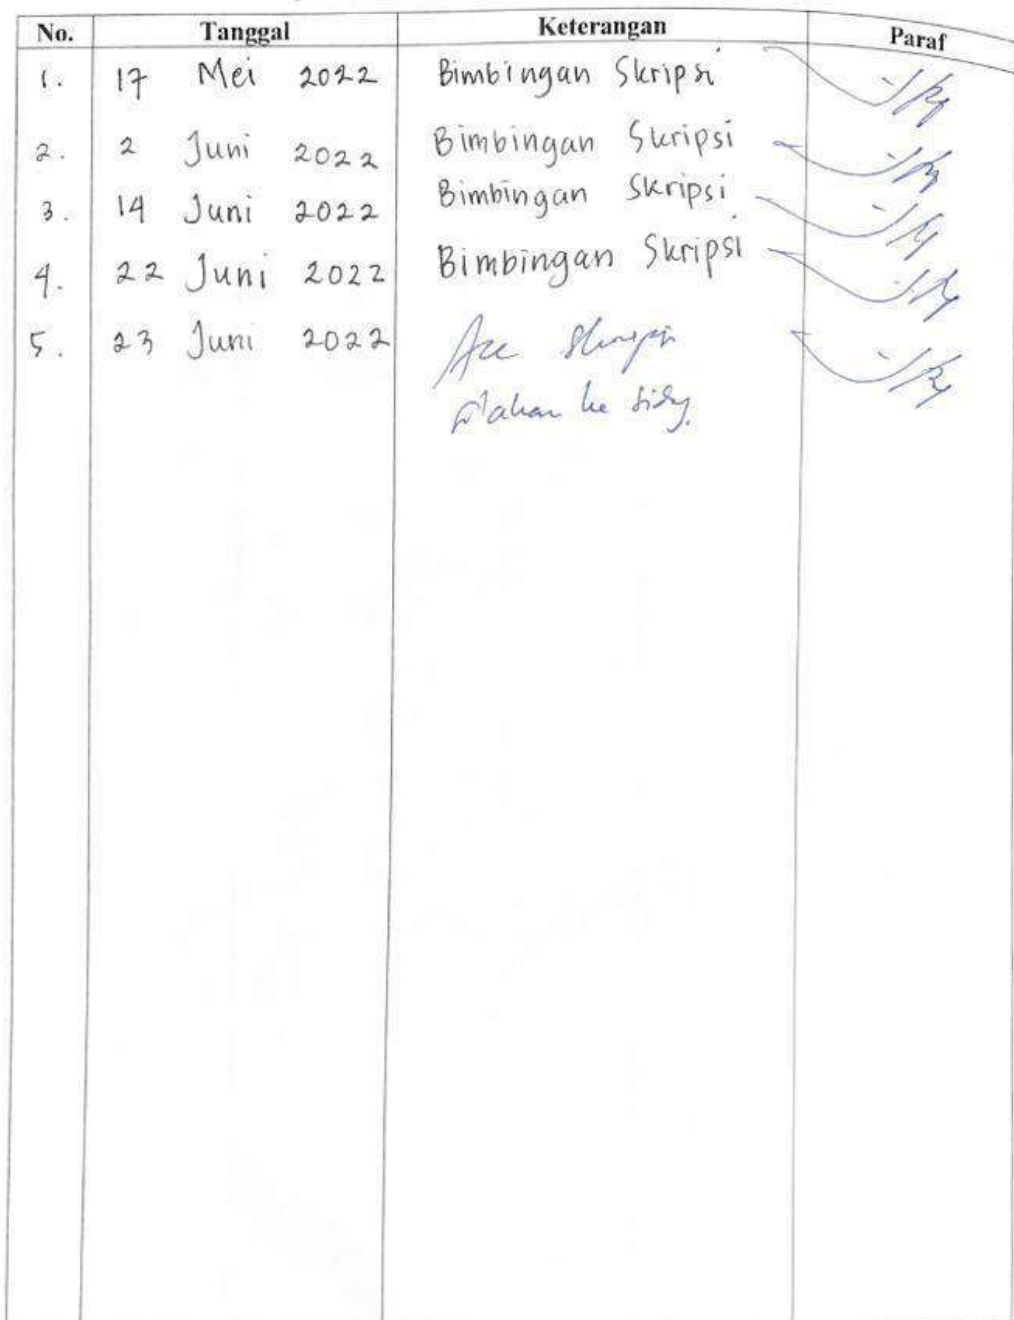 No. Tanggal Keterangan Paraf
1. 17 Mei 2022 Bimbingan Skripsi
2. 2 Juni 2022 Bimbingan Skripsi
3. 14 Juni 2022 Bimbingan Skripsi
4. 22 Juni 2022 Bimbingan Skripsi
5. 23 Juni 2022 Acc Skripsi
ke